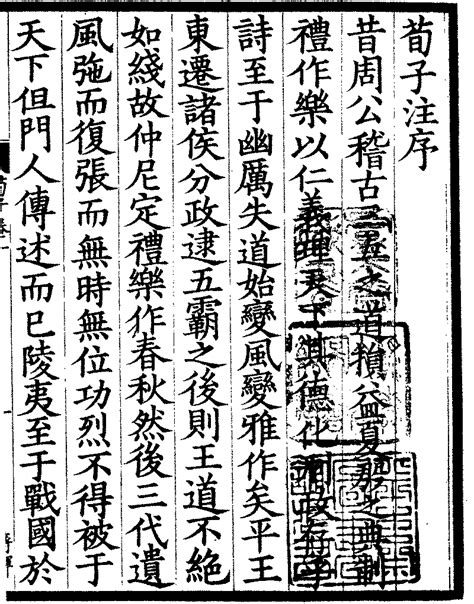 荀子注序
昔周公稽古三五之道損益夏殷之典制
禮作樂以仁義理天下其德化刑政存乎
詩至于幽厲失道始變風變雅作矣平王
東遷諸侯分政逮五霸之後則王道不絕
如綫故仲尼定禮樂作春秋然後三代遺
風弛而復張而無時無位功烈不得被于
天下但門人傳述而已陵夷至于戰國於